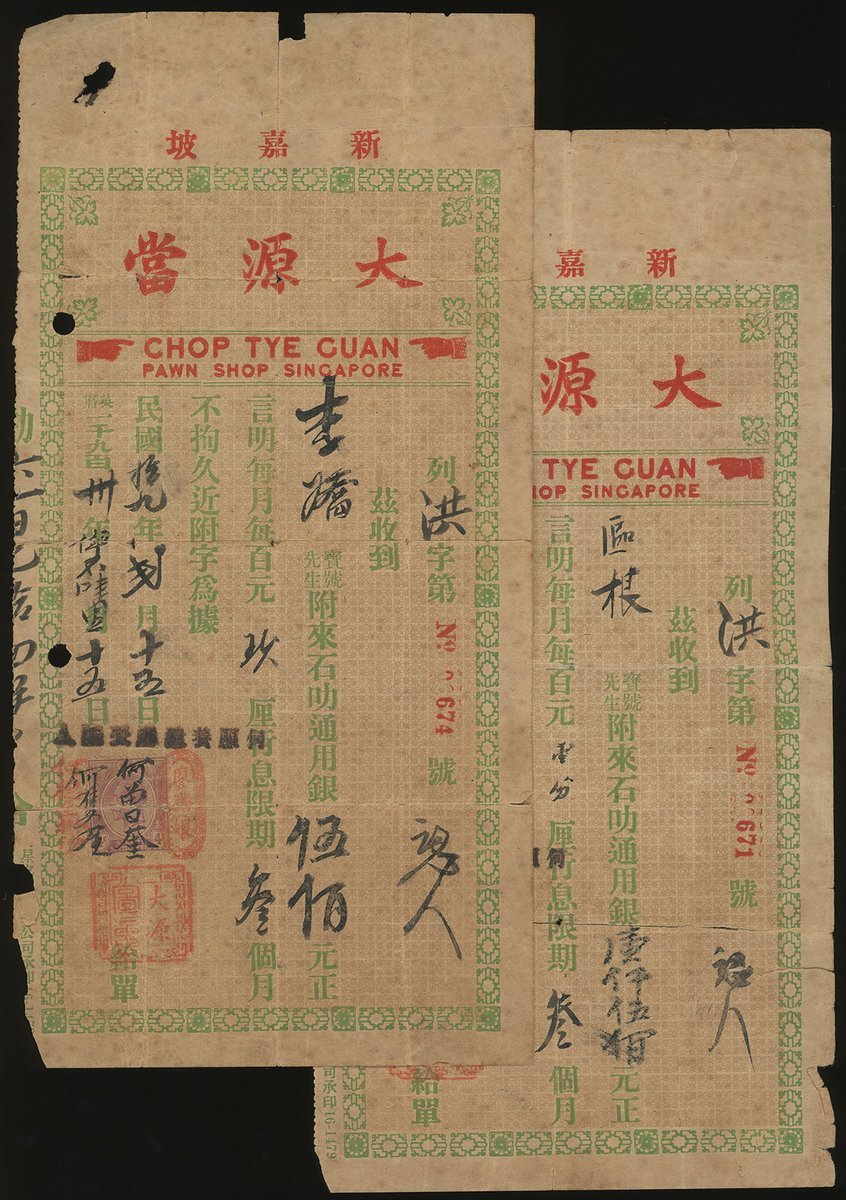 新嘉坡
大源當
CHOP TYE GUAN
PAWN SHOP SINGAPORE
列洪字第 Nº 674 號 認人
茲收到
李 寶號先生附來石叻通用銀伍佰元正
言明每月每百元玖厘行息限期叁個月
不拘久近附字爲據
民國拾九年弍月十五日
英曆一千九百卅年 十五日
給單
新嘉
大源
TYE GUAN
HOP SINGAPORE
列洪字第 Nº 671 號 認人
茲收到
區根 寶號先生附來石叻通用銀壹仟伍佰元正
言明每月每百元壹分厘行息限期叁個月
給單
司承印16-1479